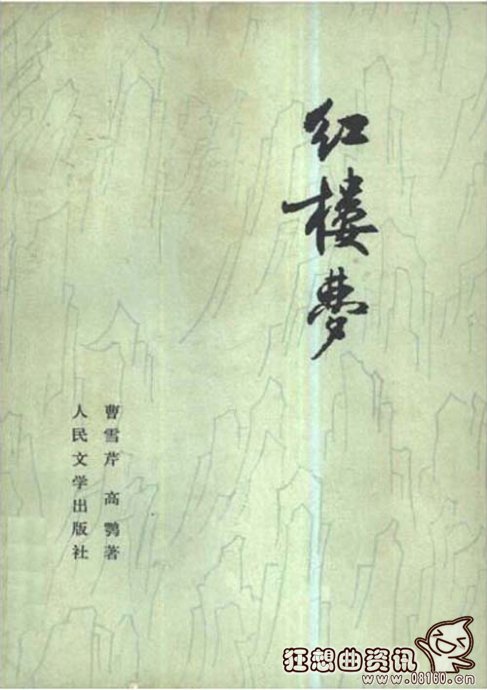 红楼梦
曹雪芹 高鹗著
人民文学出版社
狂想曲资讯
www.08160.cn